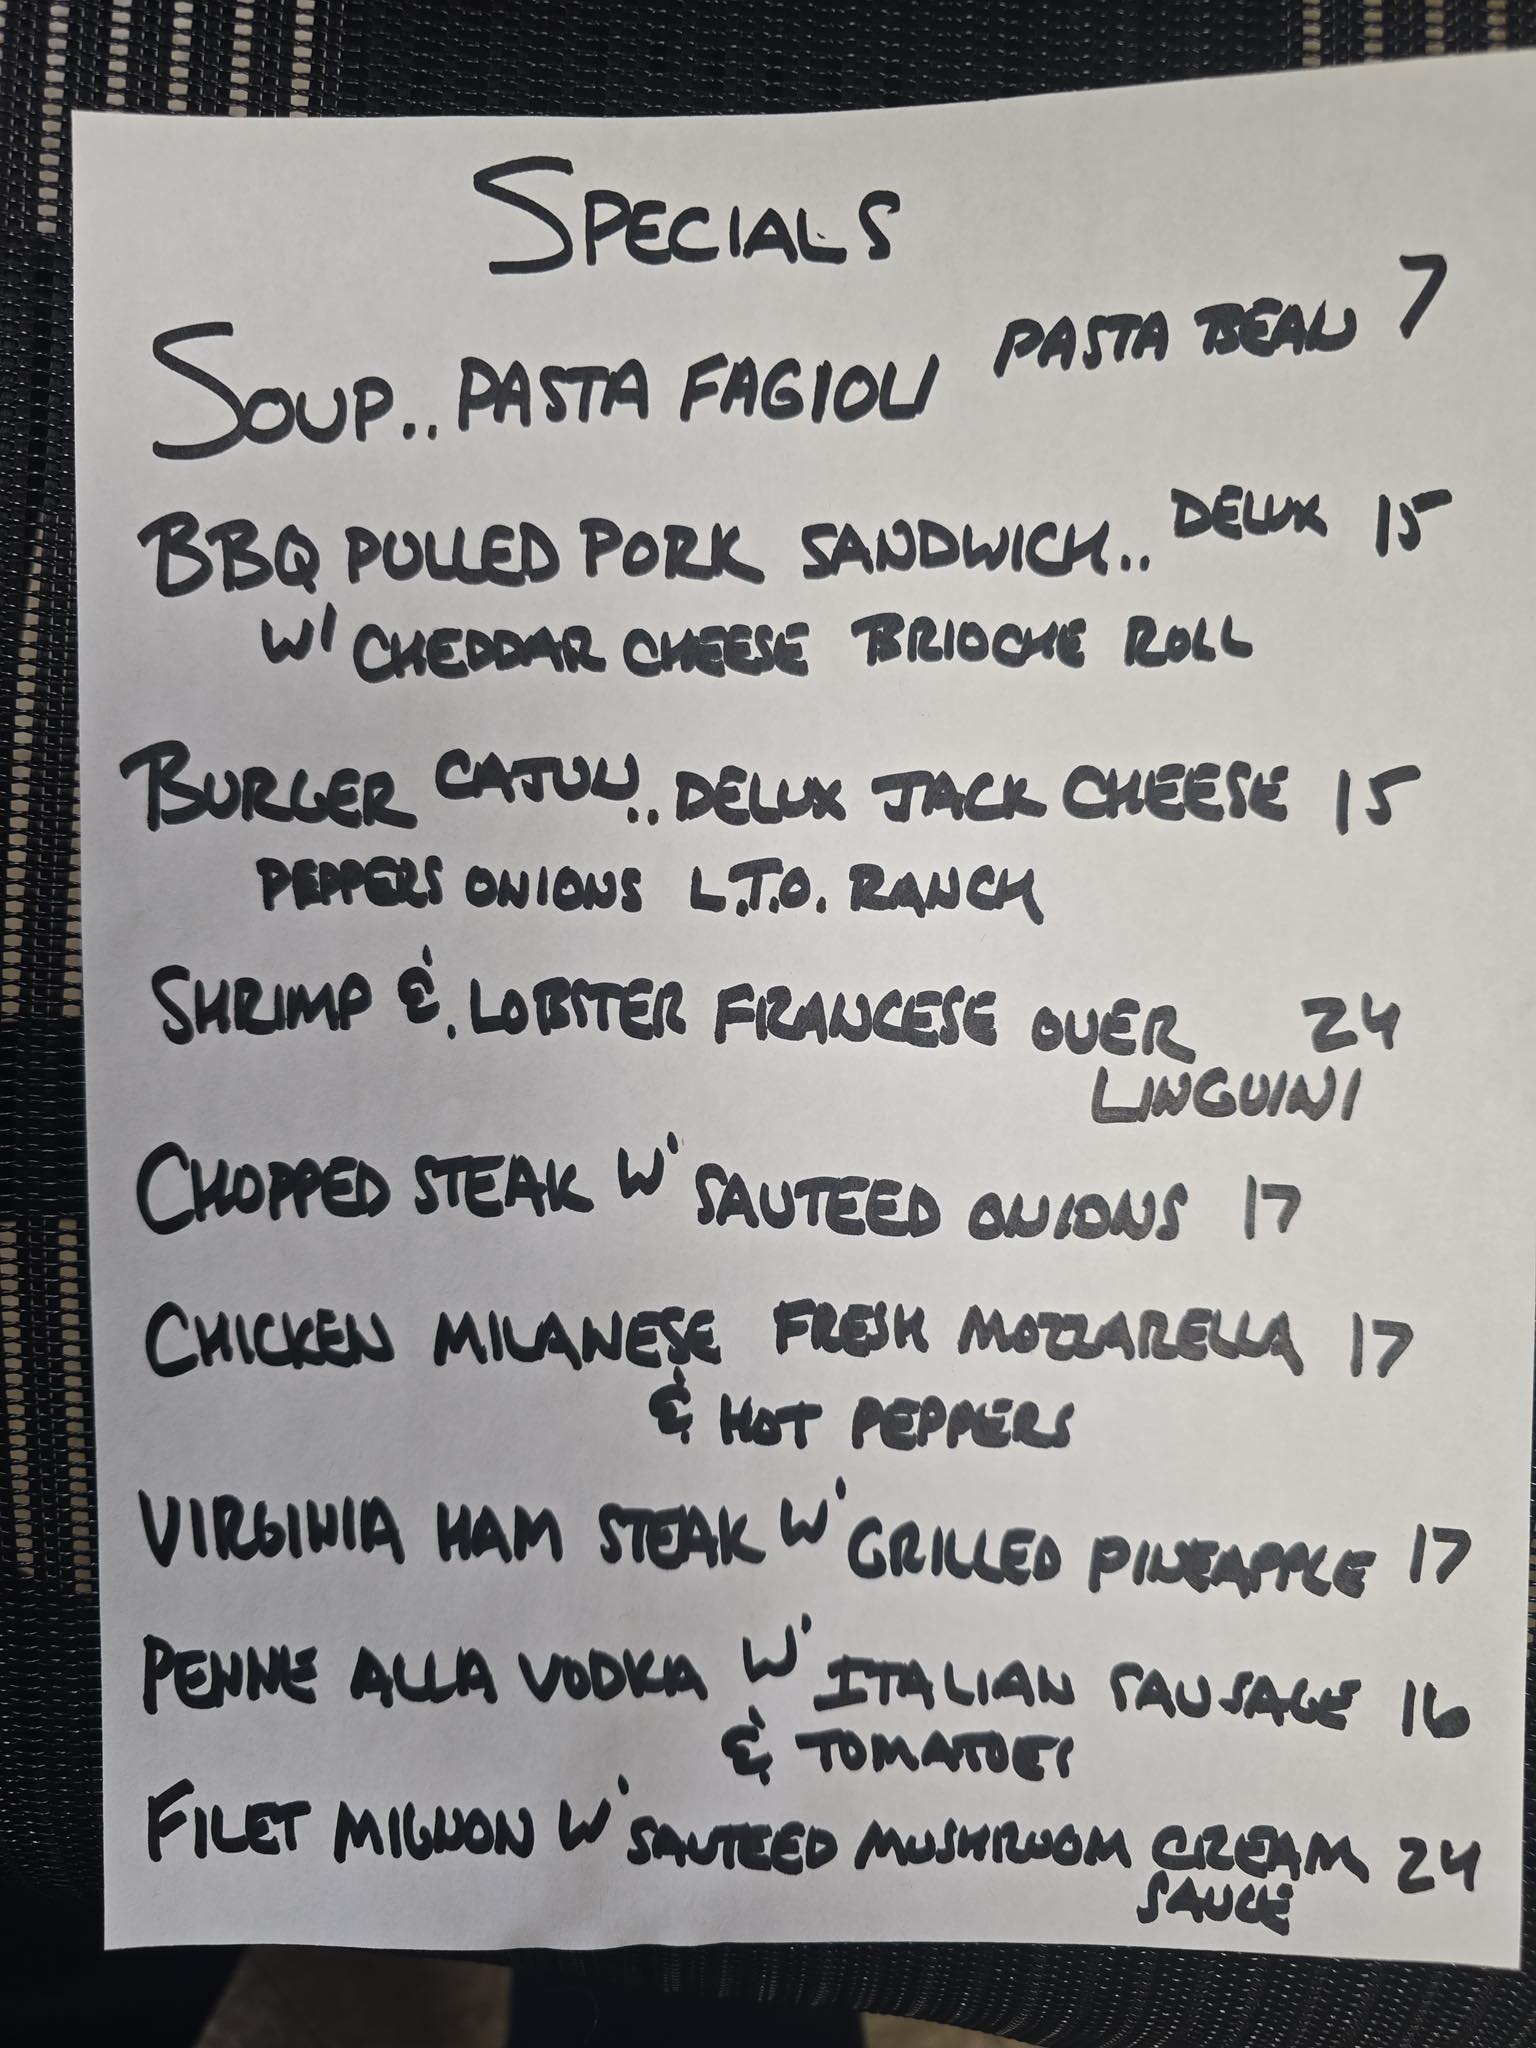 SPECIALS
SOUP.. PASTA FAGIOLI PASTA BEAN 7
BBQ PULLED PORK SANDWICH.. DELUX 15
W/ CHEDDAR CHEESE BRIOCHE ROLL
BURGER CAJUN.. DELUX JACK CHEESE 15
PEPPERS ONIONS L.T.O. RANCH
SHRIMP & LOBSTER FRANCESE OVER 24
LINGUINI
CHOPPED STEAK W' SAUTEED ONIONS 17
CHICKEN MILANESE FRESH MOZZARELLA 17
& HOT PEPPERS
VIRGINIA HAM STEAK W' GRILLED PINEAPPLE 17
PENNE ALLA VODKA W' ITALIAN SAUSAGE 16
& TOMATOES
FILET MIGNON W' SAUTEED MUSHROOM CREAM 24
SAUCE